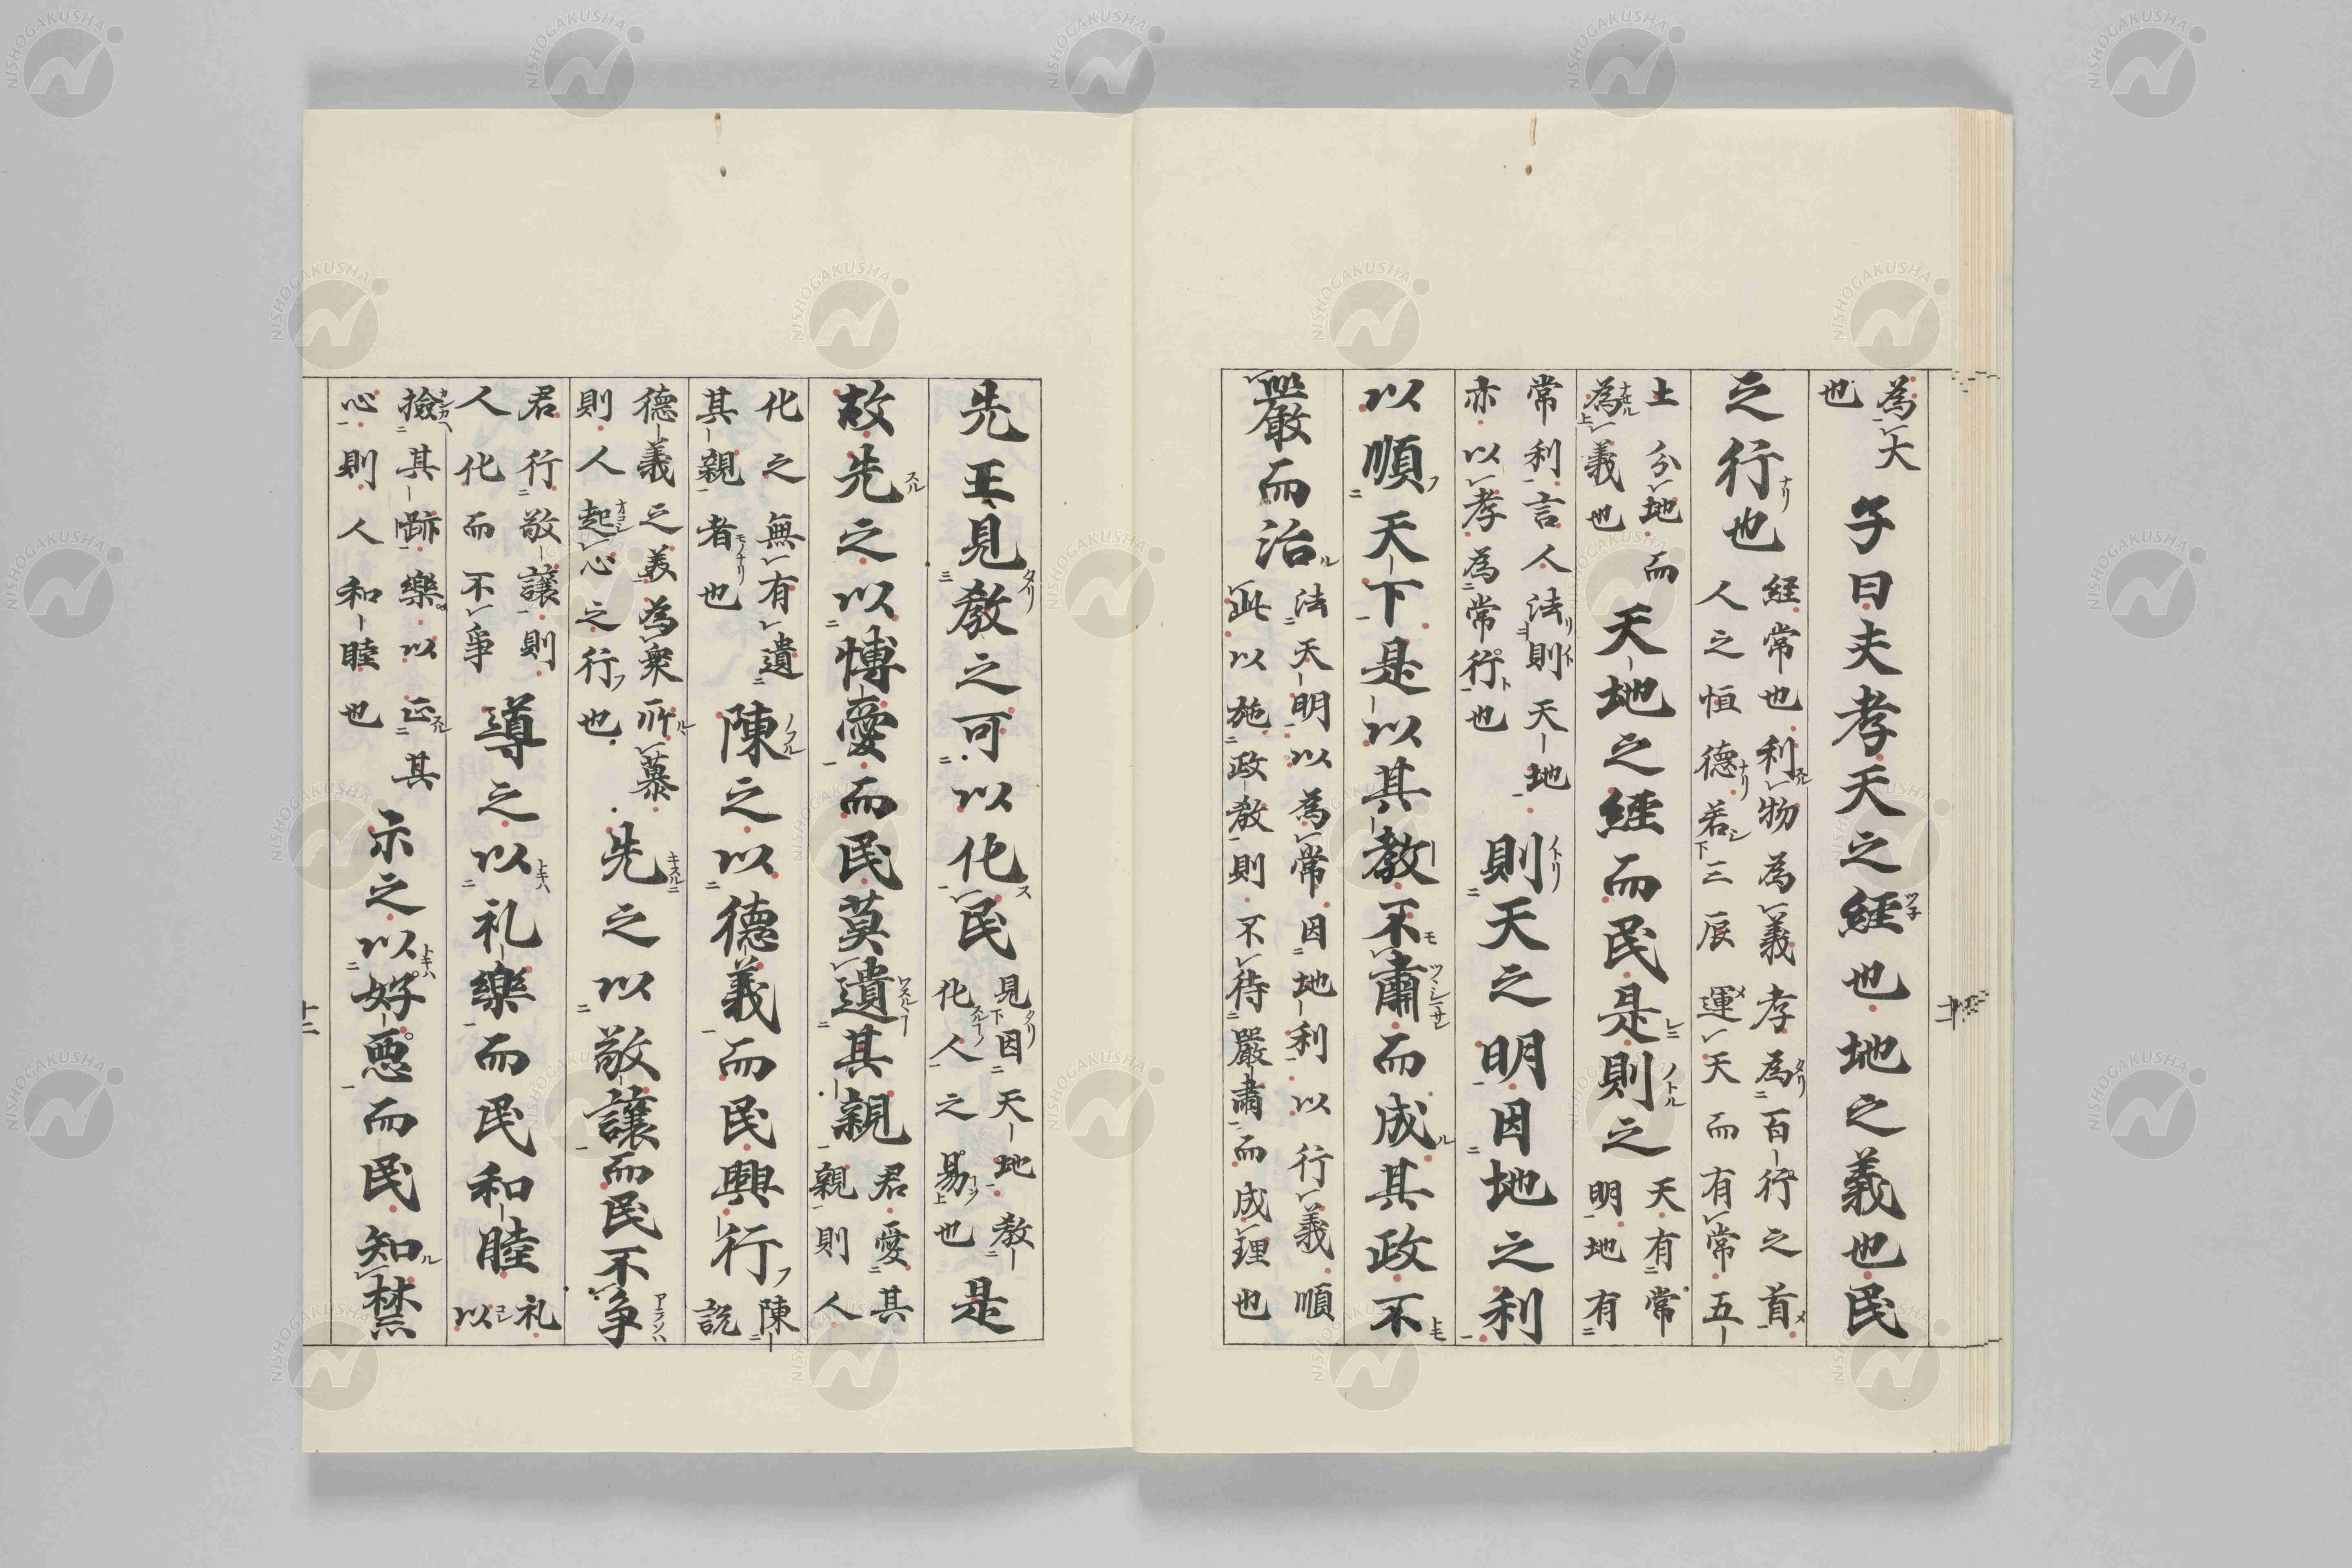 為大
也
子曰夫孝天之經也地之義也民
之行也
経常也利物為義孝為百行之首
人之恒德若三辰運天而有常五
土分地而
為義也
天地之経而民是則之
天有常
明地有
常利言人法則天地
亦以孝為常行也
則天之明因地之利
以順天下是以其教不肅而成其政不
嚴而治
法天明以為常因地利以行義順
此以施政教則不待嚴肅而成理也
先王見教之可以化民
見因天地教
化人之易也
是
故先之以博愛而民莫遺其親
君愛其
親則人
化之無有遺
其親者也
陳之以德義而民興行
陳
説
德義之美為衆所慕
則人起心之行也
先之以敬讓而民不爭
君行敬讓則
人化而不爭
導之以礼樂而民和睦
礼
以
撿其跡樂以正其
心則人和睦也
示之以好惡而民知禁
十二
NISHOGAKUSHA